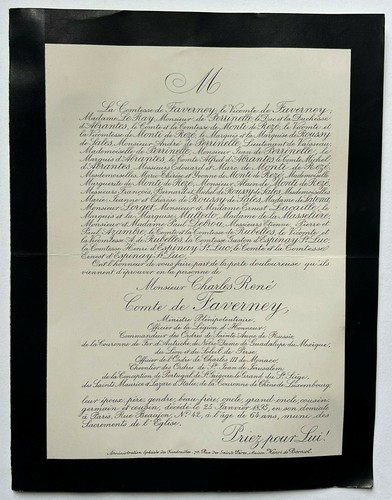 M
La Comtesse de Faverney, le Vicomte de Faverney,
Madame Le Ray, Monsieur de Perrinelle, le Duc et la Duchesse
d'Abrantès, le Comte et la Comtesse de Monti de Rezé, le Vicomte et
la Vicomtesse de Monti de Rezé, le Marquis et la Marquise de Roussy
de Sales, Monsieur André de Perrinelle, Lieutenant de Vaisseau
Mademoiselle de Perrinelle, Monsieur Jean de Perrinelle, le
Marquis d'Abrantès, le Comte Alfred d'Abrantès, le Comte Michel
d'Abrantès, Messieurs Edouard et Marc de Monti de Rezé,
Mesdemoiselles Marie-Thérèse et Yvonne de Monti de Rezé, Mademoiselle
Marguerite de Monti de Rezé, Monsieur Alain de Monti de Rezé,
Messieurs François, et Michel de Roussy de Sales, Mesdemoiselles
Marie-Jeanne et Thérèse de Roussy de Sales, Madame de
Monsieur Lorget, Monsieur et Madame Ernest Lacaille, le
Marquis et la Marquise Muligdo, Madame de la Masselière,
Monsieur et Madame Paul Lebrou, Messieurs Etienne, Pierre et
Paul, le Comte et la Comtesse de Rubelles, le Vicomte et
la Vicomtesse A. de Rubelles, la Comtesse Gaston d'Espinay St. Luc,
la Comtesse Henri d'Espinay St. Luc, le Comte et la Comtesse
Ernest d'Espinay St. Luc,
Ont l'honneur de vous faire part de la perte douloureuse qu'ils
viennent d'éprouver en la personne de
Monsieur Charles René
Comte de Faverney,
Ministre Plénipotentiaire,
Officier de la Légion d'Honneur,
Commandeur des Ordres de Sainte Anne de Russie
de la Couronne de Fer d'Autriche, de Notre-Dame de Guadalupe du Mexique,
du Lion et du Soleil de Perse
Officier de l'Ordre de Charles III de Monaco,
Chevalier des Ordres de St. Jean de Jérusalem
de la Conception de Portugal, de St. Grégoire le Grand du St. Siège,
des Saints Maurice et Lazare d'Italie, de la Couronne de Chêne de Luxembourg
leur époux, père, gendre, beau-frère, oncle, grand-oncle, cousin-
germain et cousin, décédé le 25 Janvier 1895, en son domicile
à Paris, Rue Beaujon, No. 42, à l'âge de 64 ans, muni des
Sacrements de l'Eglise.
Priez pour Lui!
Administration Spéciale des Funérailles, Rue des Saints Pères, Maison Henri de Borniol